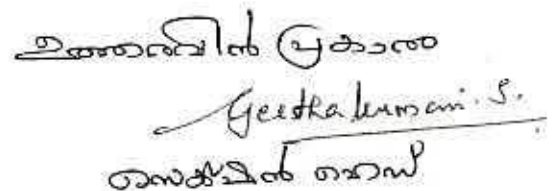 ഉത്തരവിൻ പ്രകാരം
Geethakumari. S.
സെക്ഷൻ ഹെഡ്